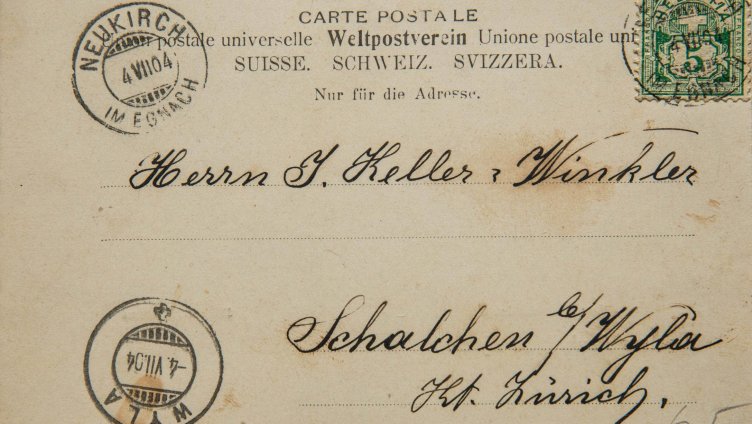 CARTE POSTALE
postale universelle Weltpostverein Unione postale uni
SUISSE. SCHWEIZ. SVIZZERA.
Nur für die Adresse.
NEUKIRCH
4 VII 04
IM EGNACH
5
Herrn J. Keller-Winkler
Schalchen b/Wyla
Kt. Zürich.
-4.VII.04
WYLA